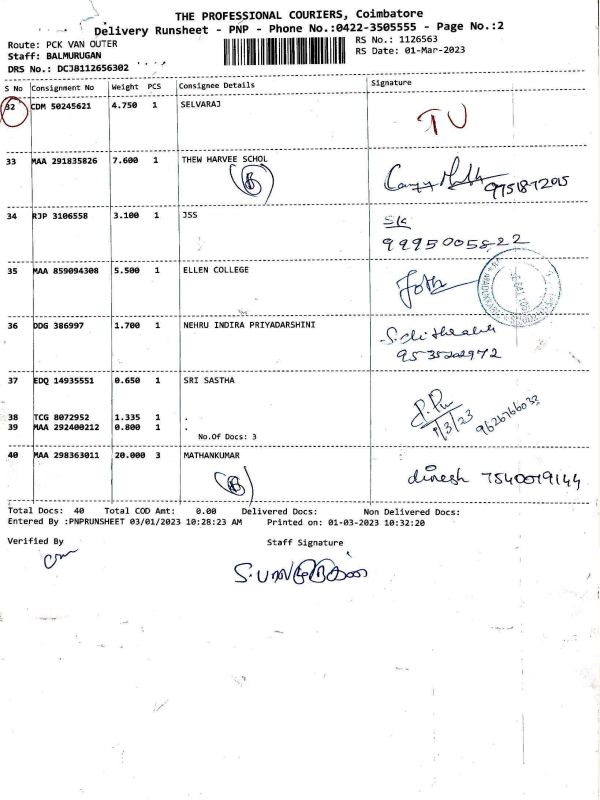 THE PROFESSIONAL COURIERS, Coimbatore
Delivery Runsheet - PNP - Phone No.:0422-3505555 - Page No.:2
Route: PCK VAN OUTER
RS No.: 1126563
Staff: BALMURUGAN
RS Date: 01-Mar-2023
DRS No.: DCJB112656302
S No Consignment No Weight PCS Consignee Details Signature
32 CDM 50245621 4.750 1 SELVARAJ
TU
33 MAA 291835826 7.600 1 THEW HARVEE SCHOL
9751872015
34 RJP 3106558 3.100 1 JSS
9995005822
35 MAA 859094308 5.500 1 ELLEN COLLEGE
36 DDG 386997 1.700 1 NEHRU INDIRA PRIYADARSHINI
9535202972
37 EDQ 14935551 0.650 1 SRI SASTHA
38 TCG 8072952 1.335 1 .
39 MAA 292400212 0.800 1 .
1/3/23
No.Of Docs: 3
40 MAA 298363011 20.000 3 MATHANKUMAR
dinesh 7540019144
Total Docs: 40 Total COD Amt: 0.00 Delivered Docs: Non Delivered Docs:
Entered By :PNPRUNSHEET 03/01/2023 10:28:23 AM Printed on: 01-03-2023 10:32:20
Verified By Staff Signature